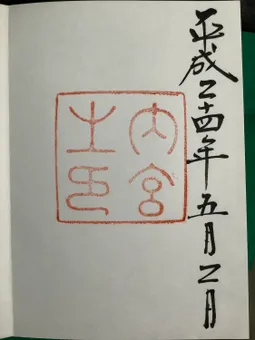 平成二十四年五月二日
内宮
之印